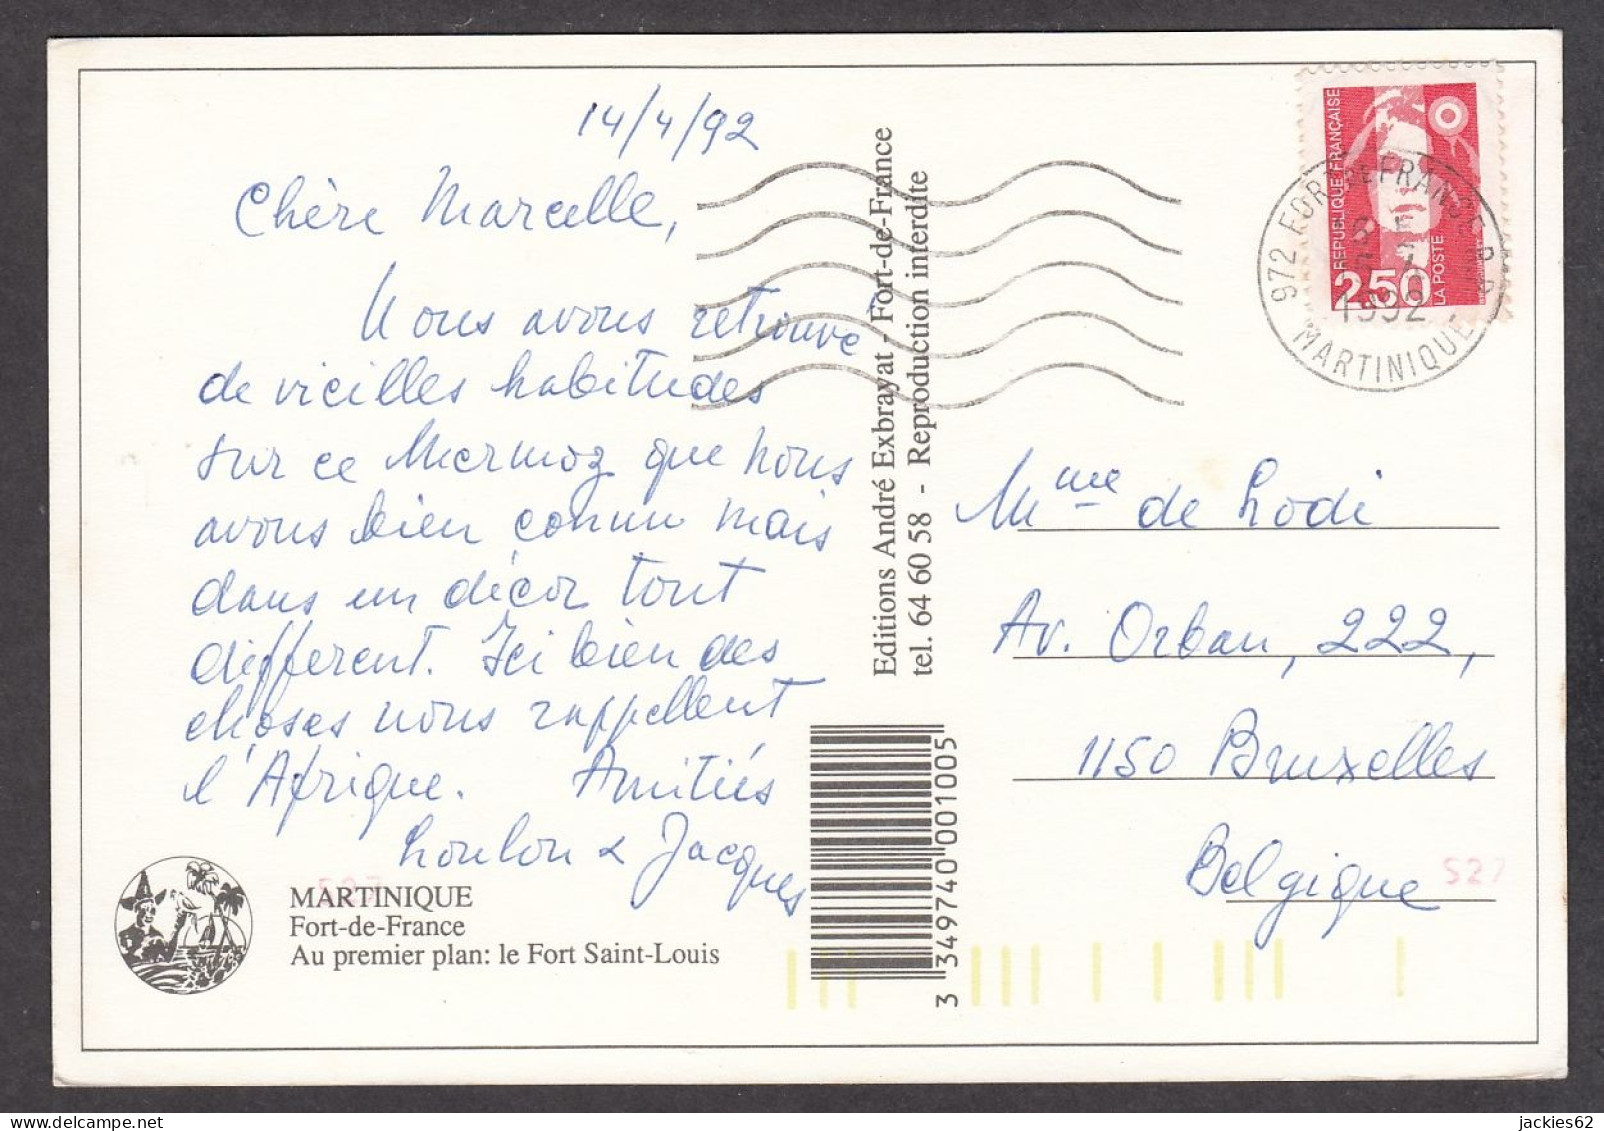 14/4/92
Chère Marcelle,
Nous avons retrouvé
de vieilles habitudes
sur ce Mermoz que nous
avons bien connu mais
dans un décor tout
différent. Ici bien des
choses nous rappellent
l'Afrique. Amitiés
Loulou & Jacques
MARTINIQUE
Fort-de-France
Au premier plan: le Fort Saint-Louis
527
Editions André Exbrayat - Fort-de-France
tel. 64 60 58 - Reproduction interdite
3 349740 001005
REPUBLIQUE FRANÇAISE
2,50
LA POSTE
972 FORT DE FRANCE R.P.
1992
MARTINIQUE
Mme de Lodi
Av. Orban, 222,
1150 Bruxelles
Belgique
527
jackies62